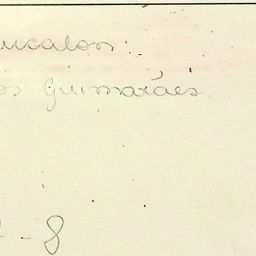 ucalon:
os Guimarães
- 8